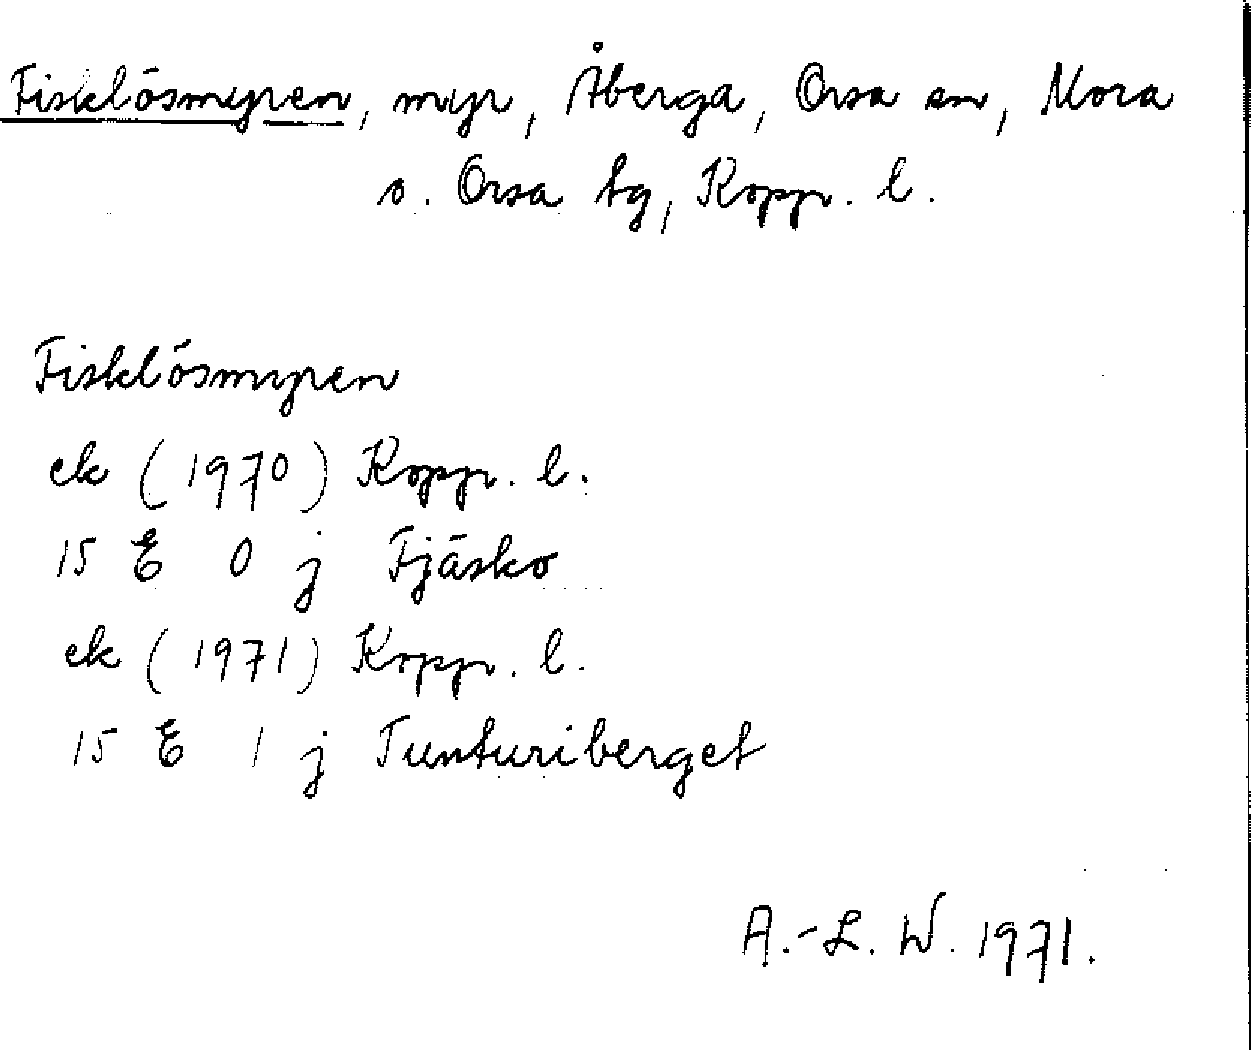 Fisklösmyren, myr, Åberga, Orsa sn, Mora
o. Orsa tg, Kopp. l.
Fisklösmyren
ek (1970) Kopp. l.
15 E 0 j Fjäsko
ek (1971) Kopp. l.
15 E 1 j Tunturiberget
A.-L. W. 1971.